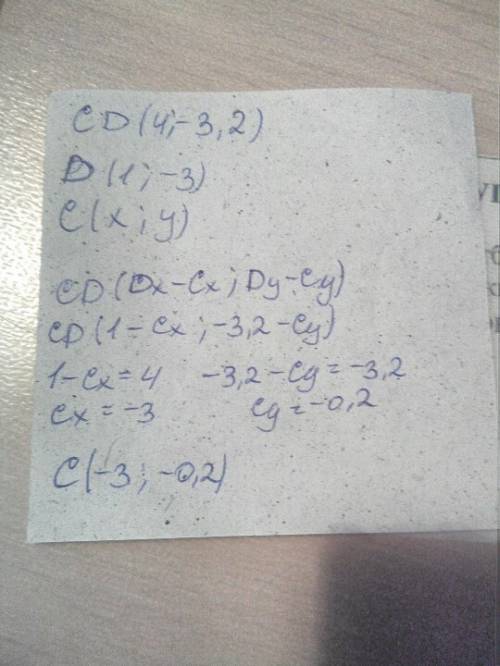 CD(4;-3,2)
D(1;-3)
C(x;y)
CD(Dx-Cx;Dy-Cy)
CD(1-Cx;-3,2-Cy)
1-Cx=4 -3,2-Cy=-3,2
Cx=-3 Cy=-0,2
C(-3;-0,2)